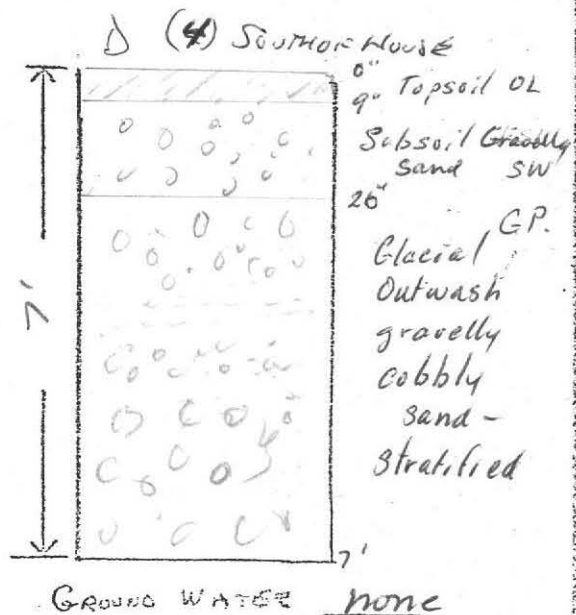 D (4) SOUTH OF HOUSE
0"
9" Topsoil OL
Subsoil Gravelly
Sand SW
26"
G.P.
Glacial
Outwash
gravelly
cobbly
sand -
Stratified
7'
7'
GROUND WATER none